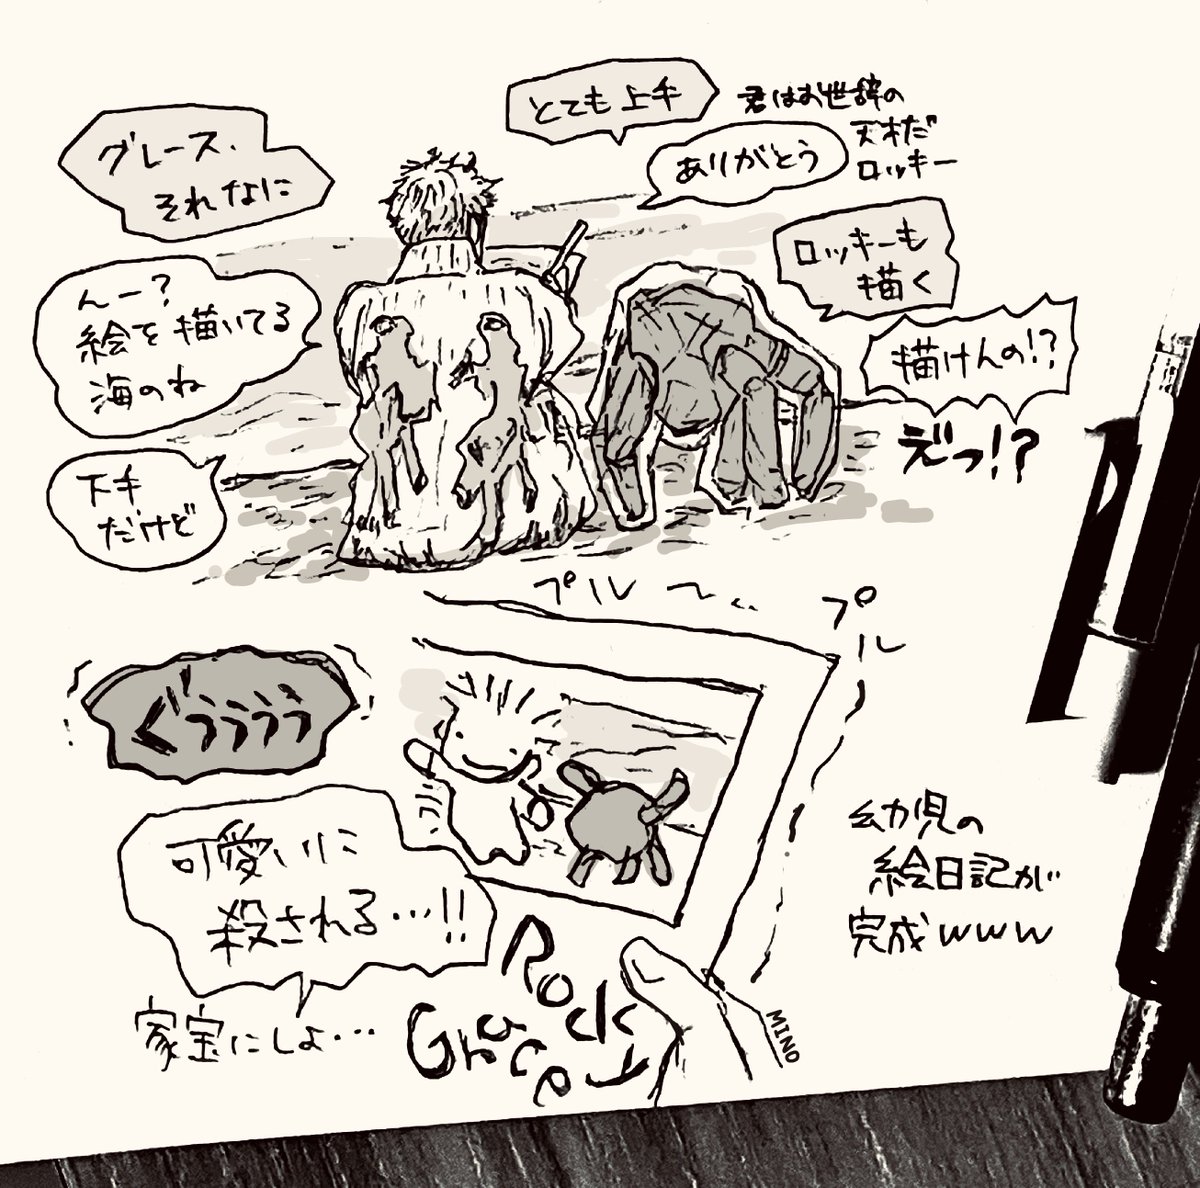 グレース、
それなに
んー?
絵を描いてる
海のね
下手
だけど
とても上手
ありがとう
君はお世辞の
天才だ
ロッキー
ロッキーも
描く
描けんの!?
えっ!?
プル〜‥
プル
ぐぅぅぅぅ
可愛いに
殺される…!!
家宝にしよ…
Rocky
Grace
幼児の
絵日記が
完成www
MINO